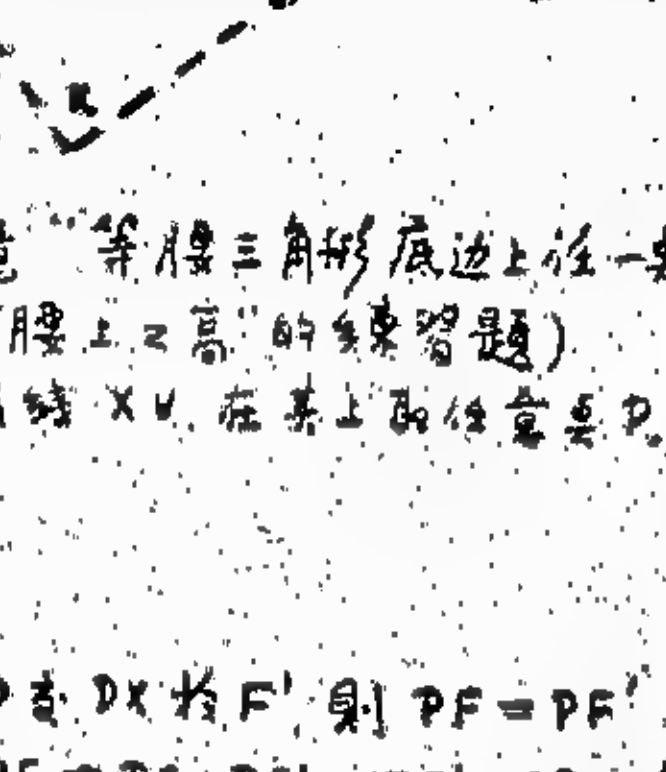 R
"等腰三角形底边上任一
腰上之高"的练習題)
线 XY 在其上取任意点 P。
DX 於 F' 則 PF = PF'